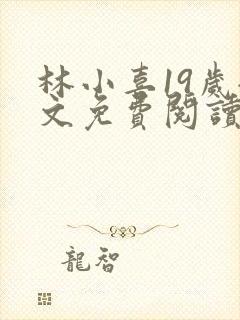 林小喜19歲
文免費閱讀
龍智